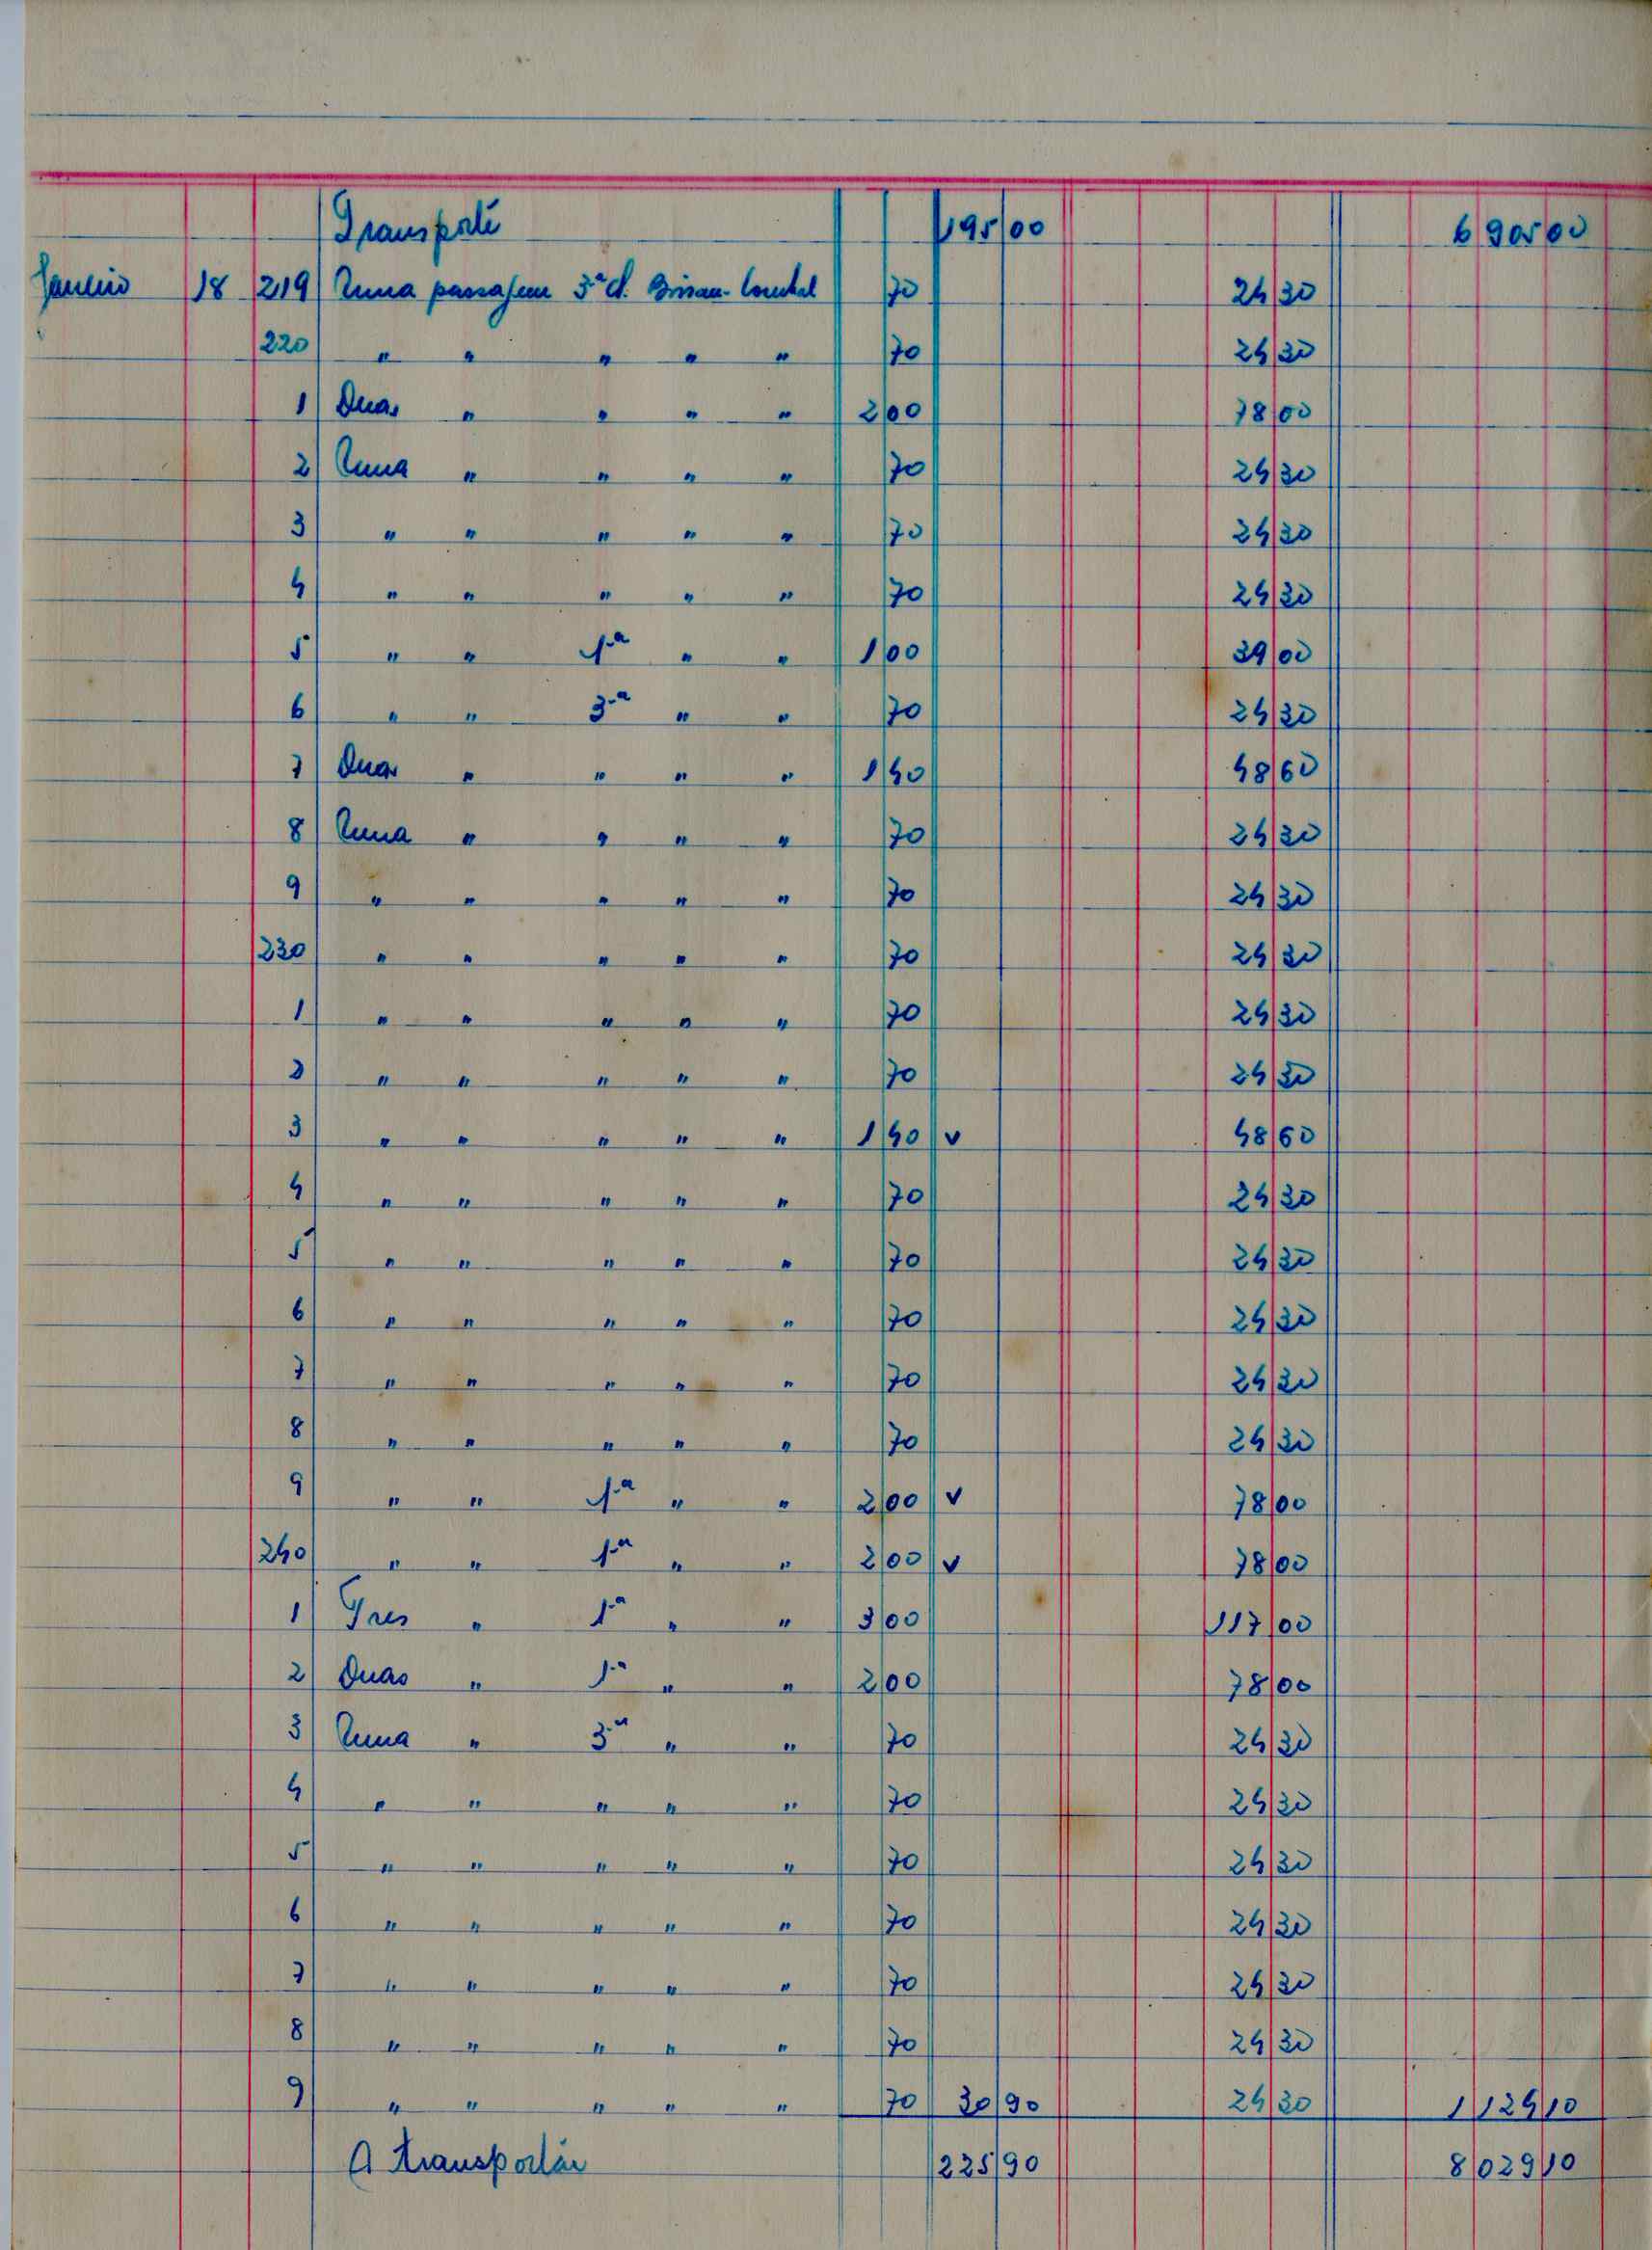 Transporte 195 00 6 905 00
Janeiro 18 219 Uma passagem 3ª cl. Bissau- 70 24 30
220 " " " " " 70 24 30
1 Duas " " " " 2 00 78 00
2 Uma " " " " 70 24 30
3 " " " " " 70 24 30
4 " " " " " 70 24 30
5 " " 1ª " " 1 00 39 00
6 " " 3ª " " 70 24 30
7 Duas " " " " 1 40 48 60
8 Uma " " " " 70 24 30
9 " " " " " 70 24 30
230 " " " " " 70 24 30
1 " " " " " 70 24 30
2 " " " " " 70 24 30
3 " " " " " 1 40 v 48 60
4 " " " " " 70 24 30
5 " " " " " 70 24 30
6 " " " " " 70 24 30
7 " " " " " 70 24 30
8 " " " " " 70 24 30
9 " " 1ª " " 2 00 v 78 00
240 " " 1ª " " 2 00 v 78 00
1 Tres " 1ª " " 3 00 117 00
2 Duas " 1ª " " 2 00 78 00
3 Uma " 3ª " " 70 24 30
4 " " " " " 70 24 30
5 " " " " " 70 24 30
6 " " " " " 70 24 30
7 " " " " " 70 24 30
8 " " " " " 70 24 30
9 " " " " " 70 30 90 24 30 1 124 10
A transportar 225 90 8 029 10